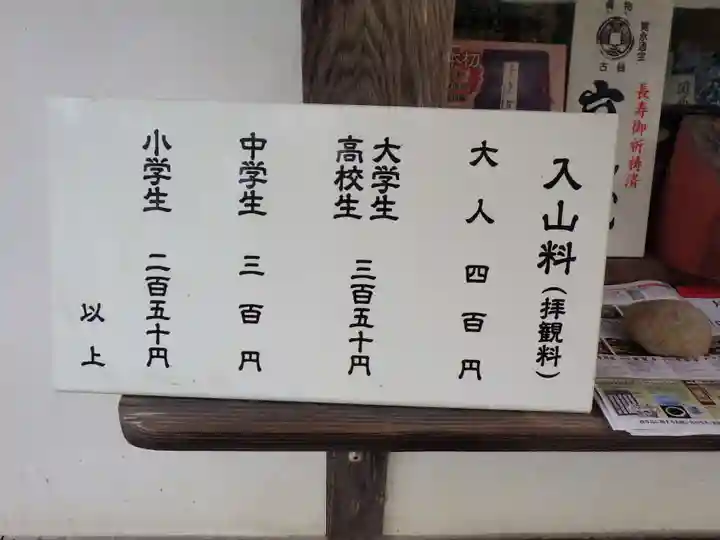 入山料（拝観料）
大人 四百円
大学生
高校生 三百五十円
中学生 三百円
小学生 二百五十円
以上
長寿御祈祷済